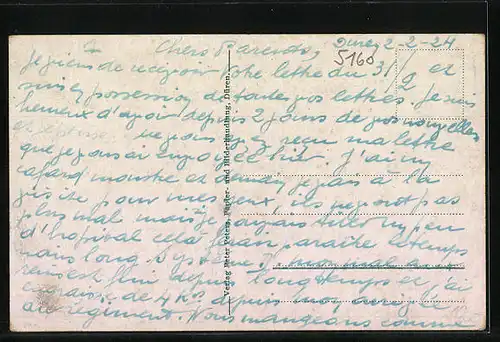 Chers Parents, Duren 2-2-24
5160
Je viens de recevoir votre lettre du 31/ et
suis en possession de toute vos lettres. Je suis
heureux d'avoir depuis 2 jours de vos nouvelles
reçu ma lettre
que je vous ai envoyée hier. J'ai un
cafard monstre et je vais à la
visite pour mes yeux, ils ne vont pas
plus mal mais je vais tirer un peu
d'hopital cela fera paraitre le temps
moins long.
est fini depuis longtemps et j'ai
engraissé de 4 Kos depuis mon arrivée
au régiment. Nous mangeons comme
Verlag Peter Peters, Papier- und Bilderhandlung, Düren.